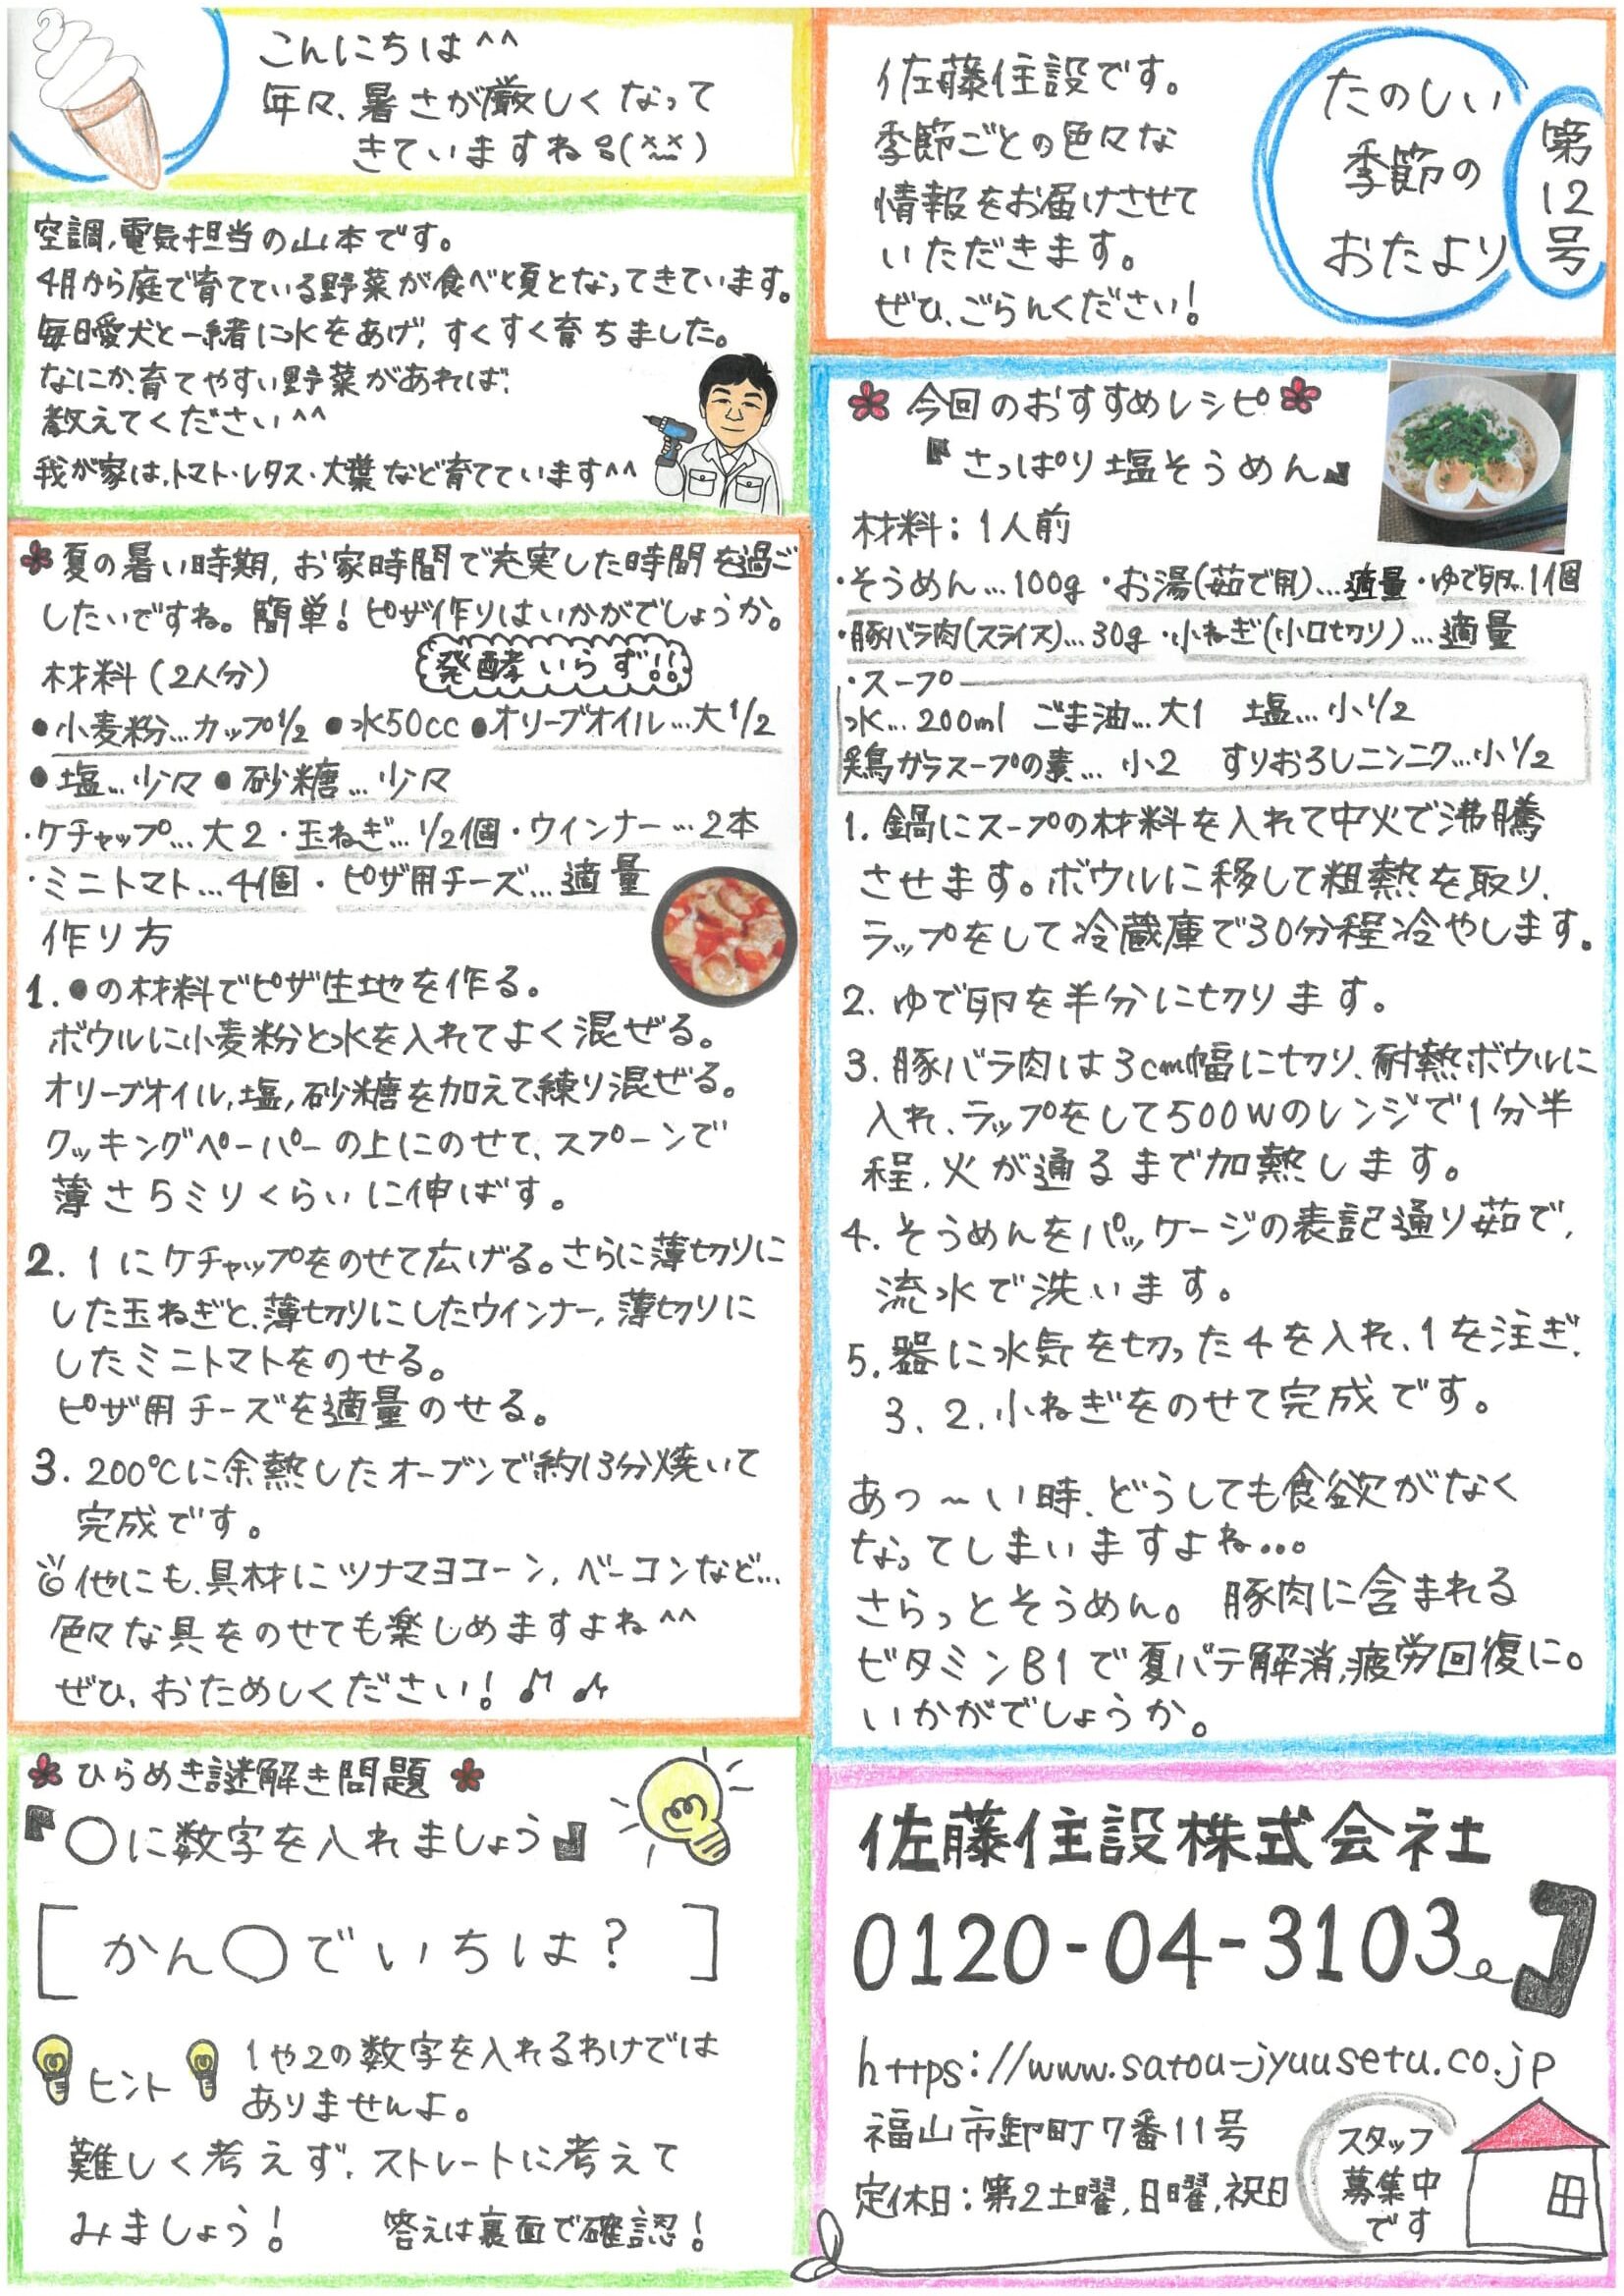 こんにちは^^
年々、暑さが厳しくなって
きていますね
佐藤住設です。
季節ごとの色々な
情報をお届けさせて
いただきます。
ぜひ、ごらんください!
たのしい
季節の
おたより
第12号
空調,電気担当の山本です。
4月から庭で育てている野菜が食べ頃となってきています。
毎日愛犬と一緒に水をあげ,すくすく育ちました。
なにか、育てやすい野菜があれば、
教えてください^^
我が家は,トマト・レタス・大葉など育てています^^
夏の暑い時期,お家時間で充実した時間を過ご
したいですね。簡単!ピザ作りはいかがでしょうか。
材料(2人分)
発酵いらず!!
●小麦粉…カップ1/2 ●水50cc ●オリーブオイル…大1/2
●塩…少々 ●砂糖…少々
・ケチャップ…大2 ・玉ねぎ…1/2個 ・ウインナー…2本
・ミニトマト…4個 ・ピザ用チーズ…適量
作り方
1.●の材料でピザ生地を作る。
ボウルに小麦粉と水を入れてよく混ぜる。
オリーブオイル,塩,砂糖を加えて練り混ぜる。
クッキングペーパーの上にのせて、スプーンで
薄さ5ミリくらいに伸ばす。
2. 1にケチャップをのせて広げる。さらに薄切りに
した玉ねぎと、薄切りにしたウインナー,薄切りに
したミニトマトをのせる。
ピザ用チーズを適量のせる。
3. 200℃に余熱したオーブンで約13分焼いて
完成です。
他にも、具材にツナマヨコーン,ベーコンなど…
色々な具をのせても楽しめますよね^^
ぜひ、おためしください!
ひらめき謎解き問題
『○に数字を入れましょう』
[かん○でいちは?]
ヒント
1や2の数字を入れるわけでは
ありませんよ。
難しく考えず、ストレートに考えて
みましょう! 答えは裏面で確認!
今回のおすすめレシピ
『さっぱり塩そうめん』
材料:1人前
・そうめん…100g ・お湯(茹で用)…適量 ・ゆで卵…1個
・豚バラ肉(スライス)…30g ・小ねぎ(小口切り)…適量
・スープ
水…200ml ごま油…大1 塩…小1/2
鶏ガラスープの素…小2 すりおろしニンニク…小1/2
1. 鍋にスープの材料を入れて中火で沸騰
させます。ボウルに移して粗熱を取り、
ラップをして冷蔵庫で30分程冷やします。
2. ゆで卵を半分に切ります。
3. 豚バラ肉は3cm幅に切り、耐熱ボウルに
入れ、ラップをして500Wのレンジで1分半
程,火が通るまで加熱します。
4. そうめんをパッケージの表記通り茹で,
流水で洗います。
5. 器に水気を切った4を入れ、1を注ぎ、
3、2、小ねぎをのせて完成です。
あつ～い時、どうしても食欲がなく
なってしまいますよね…
さらっとそうめん。豚肉に含まれる
ビタミンB1で夏バテ解消,疲労回復に。
いかがでしょうか。
佐藤住設株式会社
0120-04-3103
https://www.satou-jyuusetu.co.jp
福山市卸町7番11号
定休日:第2土曜,日曜,祝日
スタッフ
募集中
です